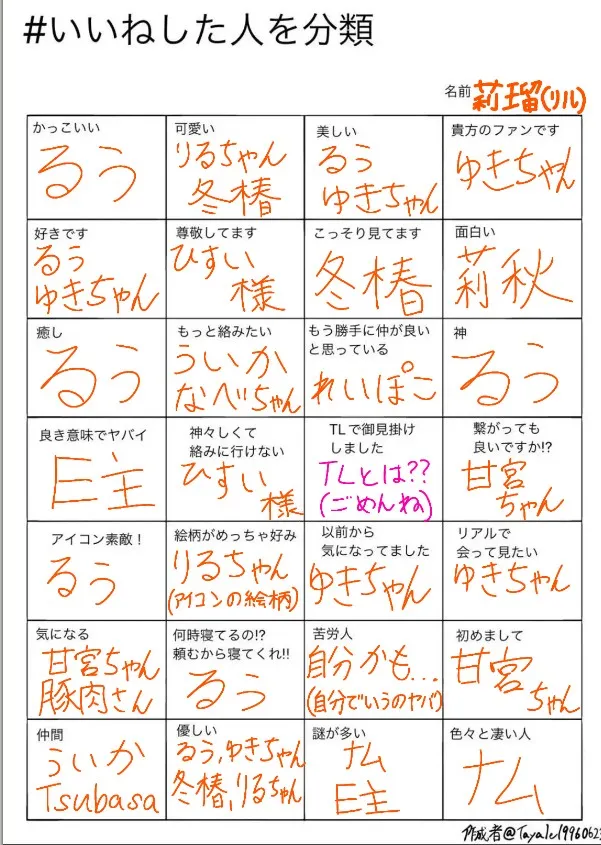 #いいねした人を分類
名前 莉瑠(リル)
かっこいい
るう
可愛い
りるちゃん
冬椿
美しい
るう
ゆきちゃん
貴方のファンです
ゆきちゃん
好きです
るう
ゆきちゃん
尊敬してます
ひすい
様
こっそり見てます
冬椿
面白い
莉秋
癒し
るう
もっと絡みたい
ういか
なべちゃん
もう勝手に仲が良い
と思っている
れいぽこ
神
るう
良き意味でヤバイ
E主
神々しくて
絡みに行けない
ひすい
様
TLで御見掛け
しました
TLとは??
(ごめんね)
繋がっても
良いですか!?
甘宮
ちゃん
アイコン素敵!
るう
絵柄がめっちゃ好み
りるちゃん
(アイコンの絵柄)
以前から
気になってました
ゆきちゃん
リアルで
会って見たい
ゆきちゃん
気になる
甘宮ちゃん
豚肉さん
何時寝てるの!?
頼むから寝てくれ!!
るう
苦労人
自分かも…
(自分でいうのヤバ)
初めまして
甘宮
ちゃん
仲間
ういか
Tsubasa
優しい
るう,ゆきちゃん
冬椿,りるちゃん
謎が多い
ナム
E主
色々と凄い人
ナム